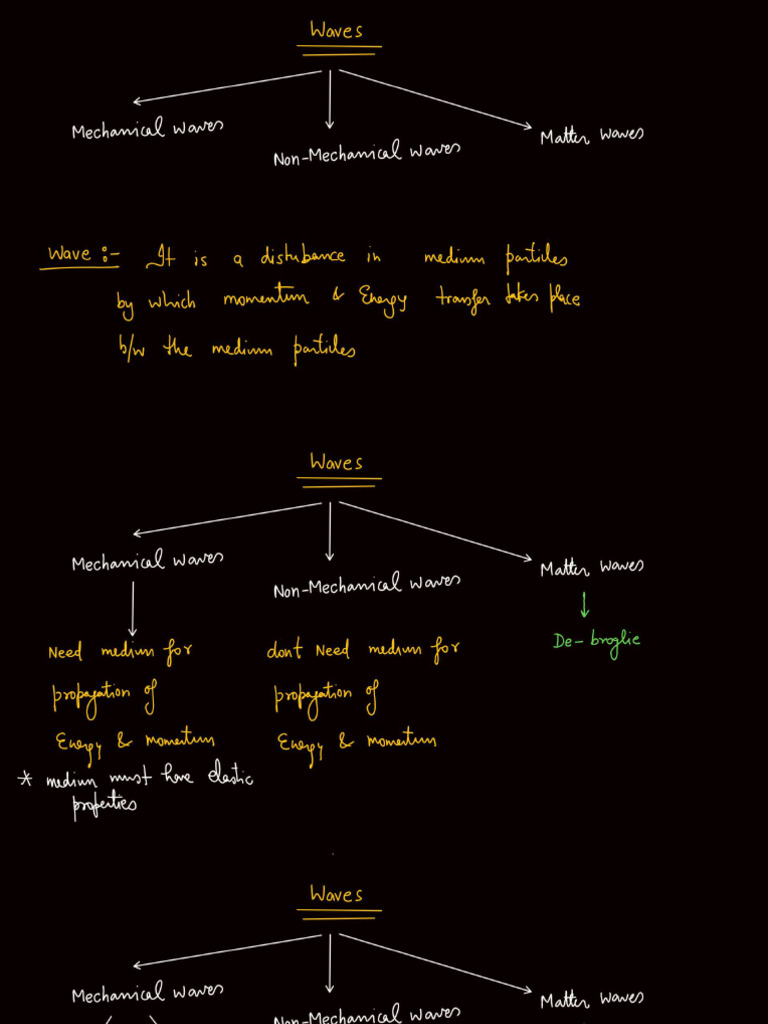 Waves
Mechanical waves
Non-Mechanical waves
Matter waves
Wave :- It is a distubance in medium particles
by which momentum & Energy transfer takes place
b/w the medium particles
Waves
Mechanical waves
Non-Mechanical waves
Matter waves
De-broglie
Need medium for
propagation of
Energy & momentum
* medium must have elastic
properties
dont Need medium for
propagation of
Energy & momentum
Waves
Mechanical waves
Non-Mechanical waves
Matter waves